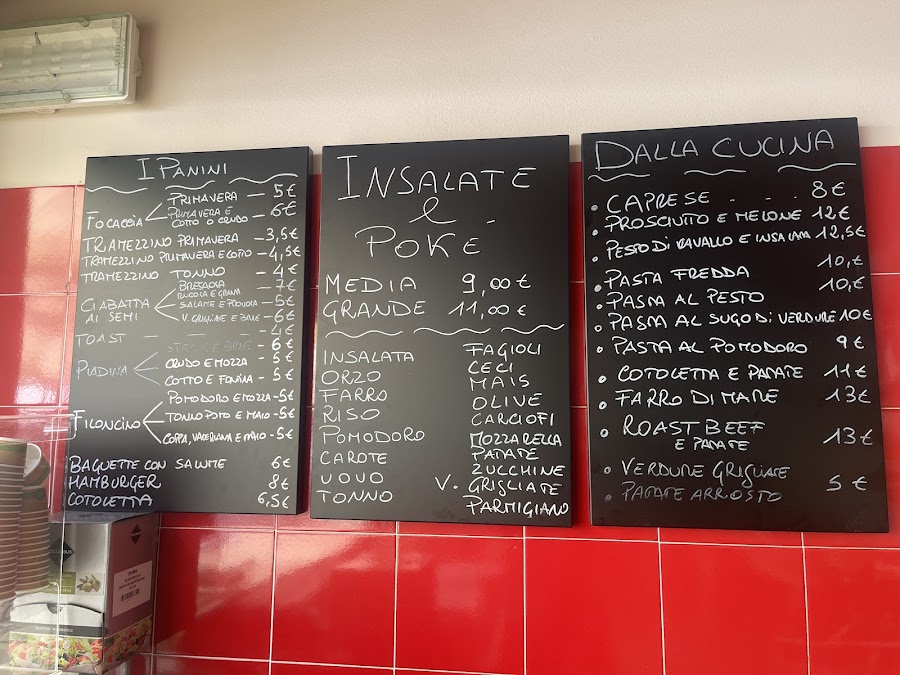 I PANINI
FOCACCIA
PRIMAVERA — 5€
PRIMAVERA E
COTTO O CRUDO — 6€
TRAMEZZINO PRIMAVERA — 3,5€
TRAMEZZINO PRIMAVERA E COTTO — 4,5€
TRAMEZZINO TONNO — 4€
CIABATTA
AI SEMI
BRESAOLA
RUCOLA E GRANA — 7€
SALAME E PROVOLA — 5€
V. GRIGLIATE E BRIE — 6€
TOAST — 4€
PIADINA
BRIE — 6€
CRUDO E MOZZA — 5€
COTTO E FONTINA — 5€
FILONCINO
POMODORO E MOZZA — 5€
TONNO POMO E MAIO — 5€
COPPA, VALERIANA E MAIO — 5€
BAGUETTE CON SALUME 6€
HAMBURGER 8€
COTOLETTA 6,5€
INSALATE
e
POKÈ
MEDIA 9,00€
GRANDE 11,00€
INSALATA
ORZO
FARRO
RISO
POMODORO
CAROTE
UOVO
TONNO
FAGIOLI
CECI
MAIS
OLIVE
CARCIOFI
MOZZARELLA
PATATE
ZUCCHINE
V. GRIGLIATE
PARMIGIANO
DALLA CUCINA
• CAPRESE - . . . 8€
• PROSCIUTTO E MELONE 12€
• PESTO DI CAVALLO E INSALATA 12,5€
• PASTA FREDDA 10,€
• PASTA AL PESTO 10,€
• PASTA AL SUGO DI VERDURE 10€
• PASTA AL POMODORO 9€
• COTOLETTA E PATATE 11€
• FARRO DI MARE 13€
• ROAST BEEF
E PATATE 13€
• VERDURE GRIGLIATE
• PATATE ARROSTO 5€